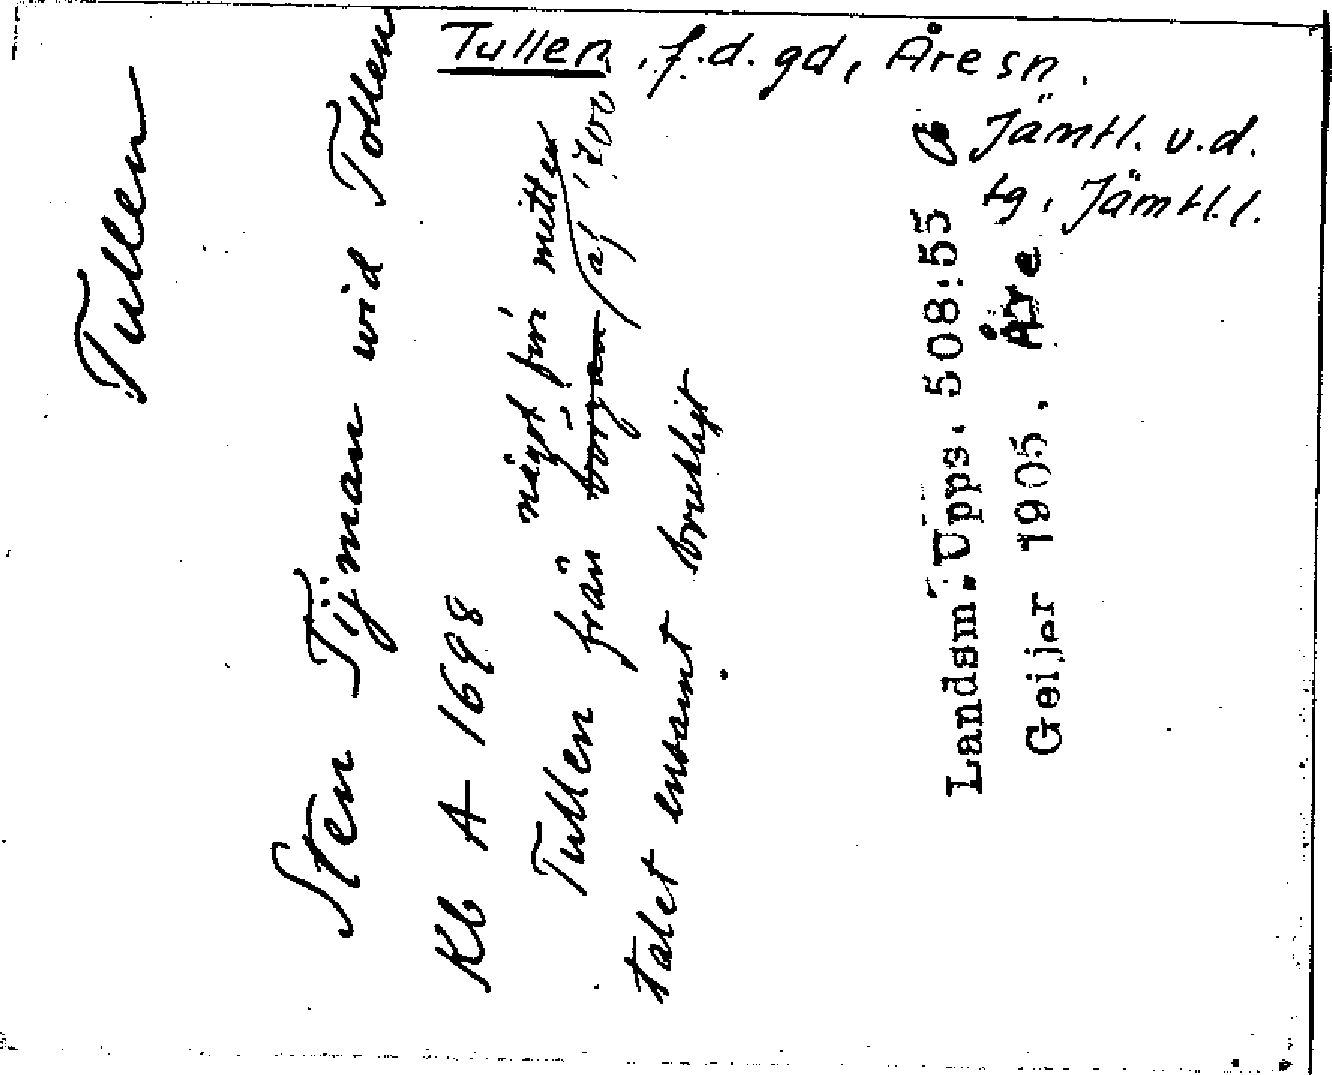 Tullen, f.d. gd, Åre sn.
Jämtl. v.d.
tg, Jämtl. l.
Tullen
Sten Tijman wid Tollen
Kb A 1698
något för mitten
Tullen från början af 1700-
talet ensamt brukligt
Landsm. Upps. 508:55
Geijer 1905. Åre